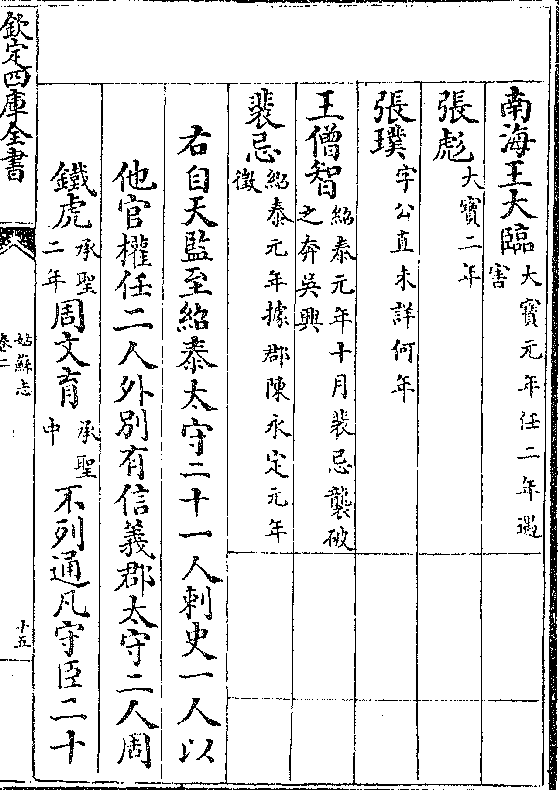 南海王大臨大寶元年任二年遇害
張彪大寶二年
張璞字公直未詳何年
王僧智紹泰元年十月裴忌襲破之奔吳興
裴忌紹泰元年據郡陳永定元年徵
右自天監至紹泰太守二十一人刺史一人以
他官權任二人外別有信義郡太守二人周
鐵虎承聖二年周文育承聖中不列通凡守臣二十
欽定四庫全書
姑蘇志
卷二
十五